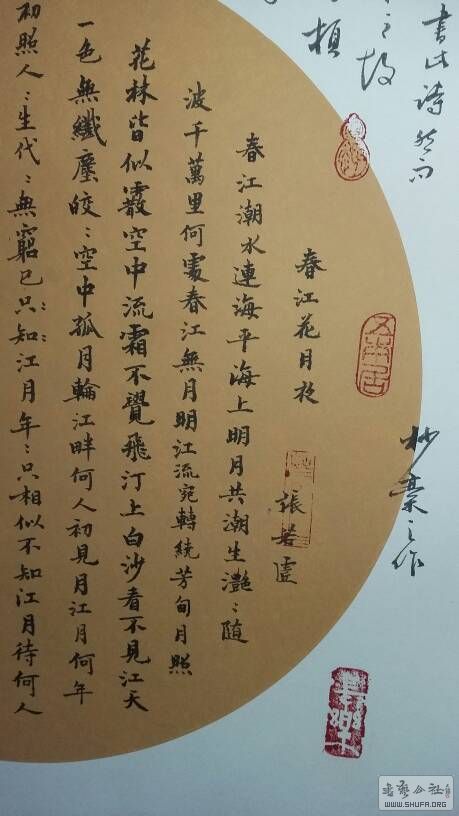 書此詩
之故
春江花月夜
張若虛
春江潮水連海平海上明月共潮生灔〻隨
波千萬里何處春江無月明江流宛轉繞芳甸月照
花林皆似霰空中流霜不覺飛汀上白沙看不見江天
一色無纖塵皎〻空中孤月輪江畔何人初見月江月何年
初照人〻生代〻無窮已只〻知〻江月年〻只相似不知江月待何人
之作
書藝公社
WWW.SHUFA.ORG